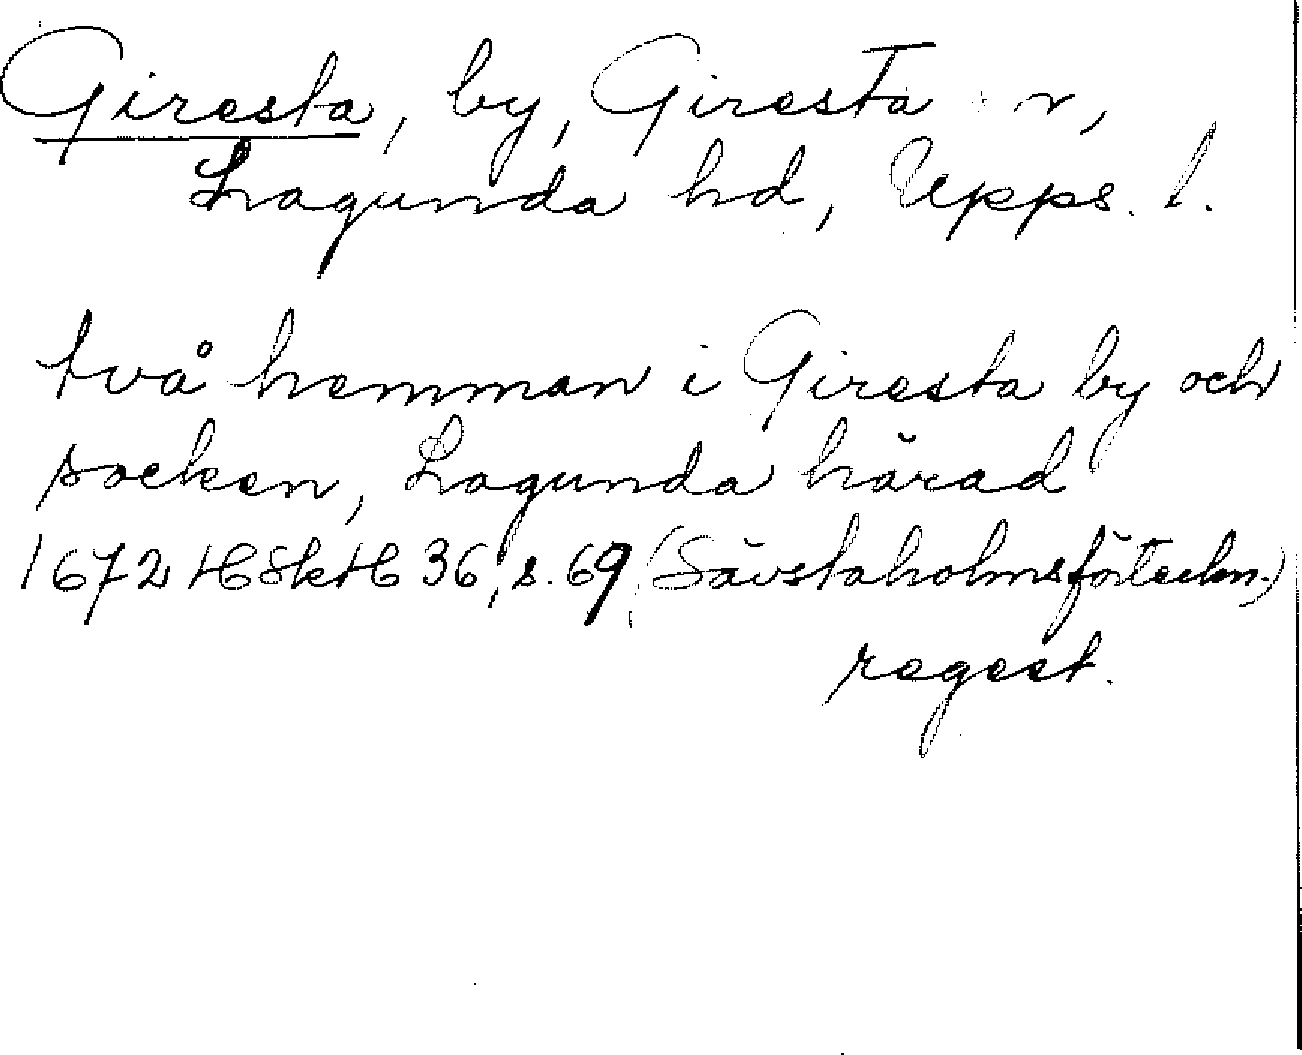 Giresta, by, Giresta sn,
Lagunda hd, Upps. l.
två hemman i Giresta by och
socken, Lagunda härad
1672 HSkH 36, s. 69 (Sävstaholmsförteckn.)
regest.